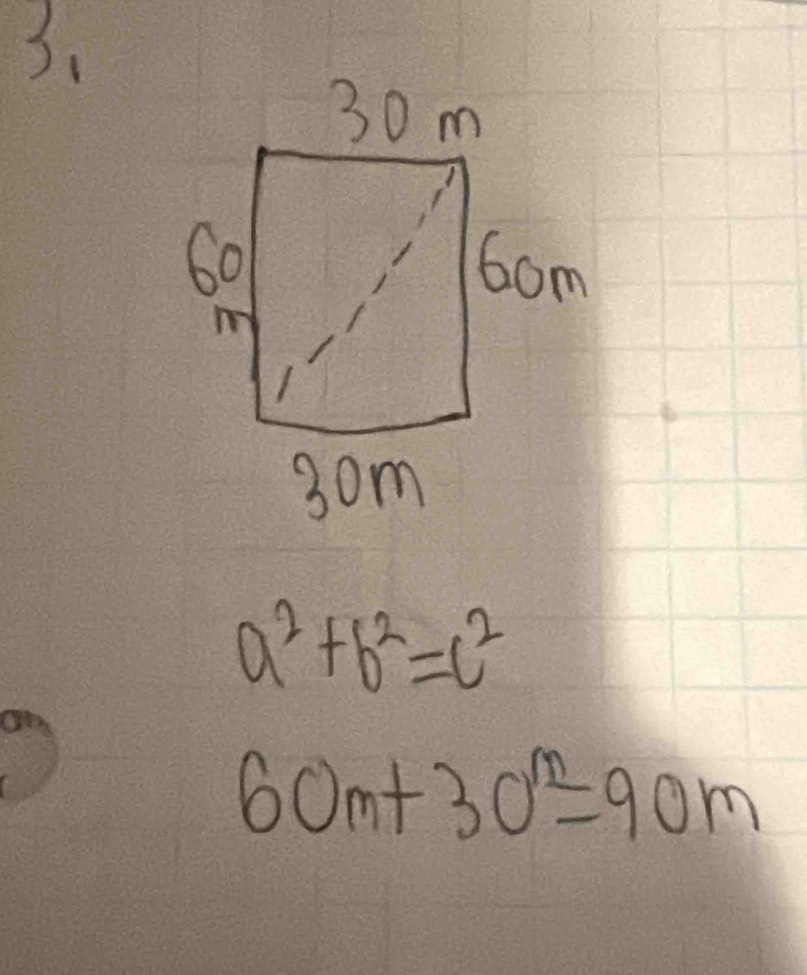 3.
30 m
60 m
60m
30m
a²+b²=c²
60m+30m=90m